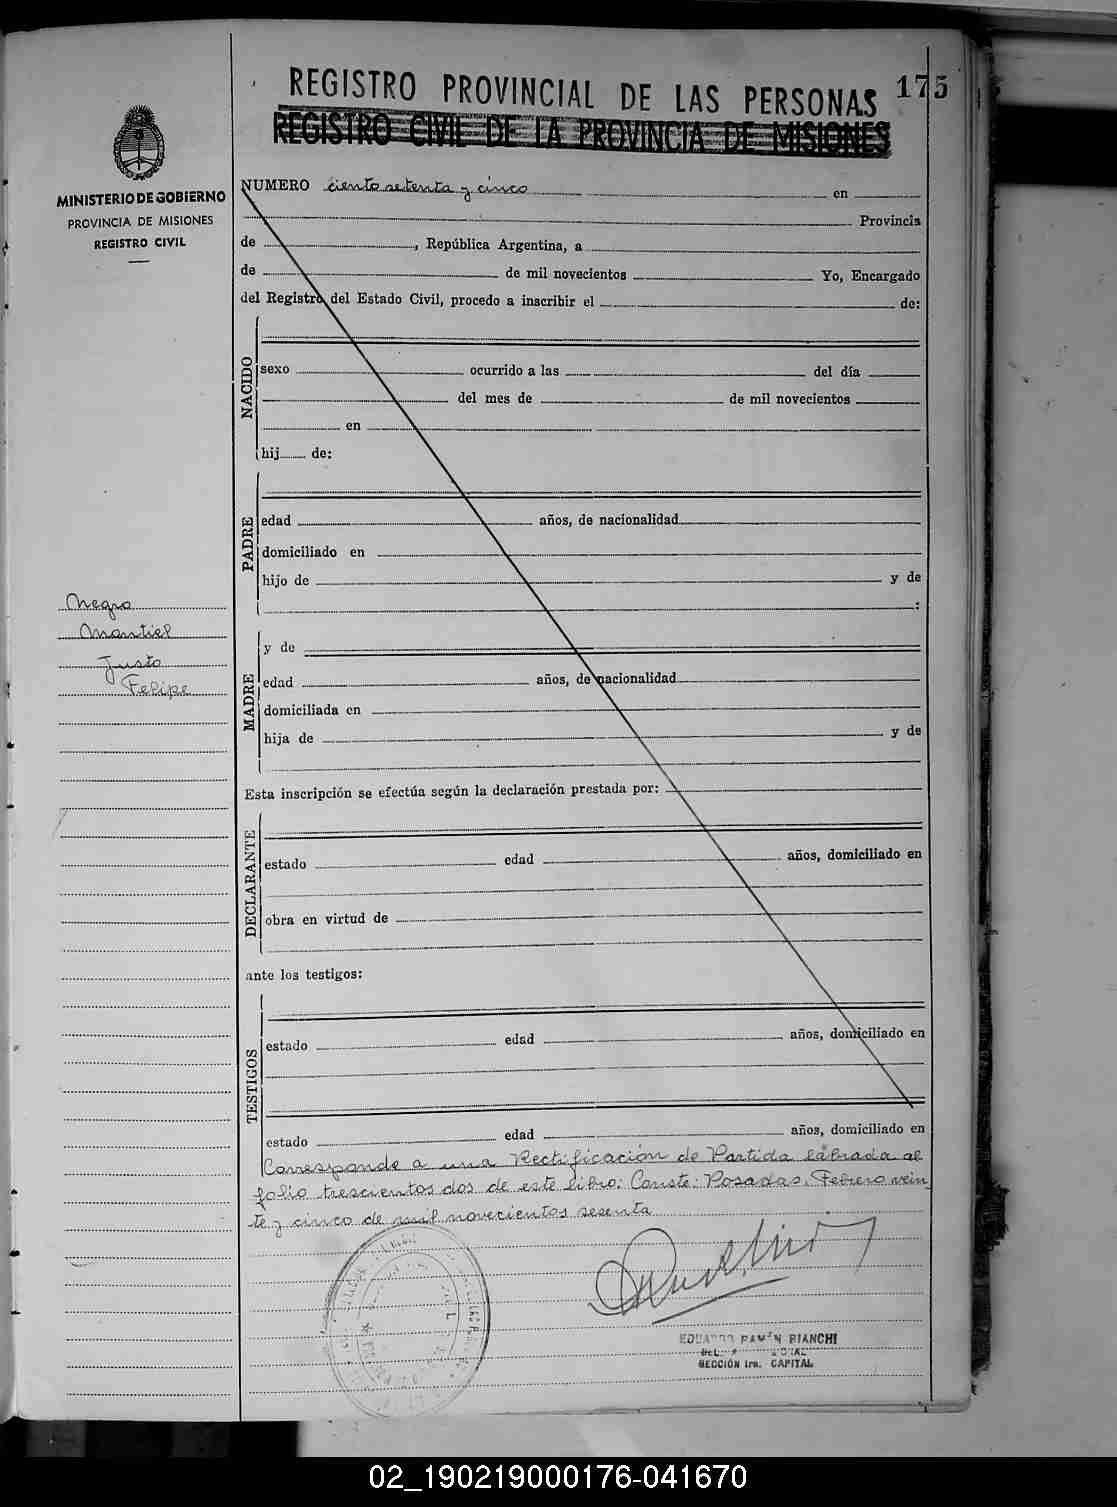 175
REGISTRO PROVINCIAL DE LAS PERSONAS
REGISTRO CIVIL DE LA PROVINCIA DE MISIONES
MINISTERIO DE GOBIERNO
PROVINCIA DE MISIONES
REGISTRO CIVIL
NUMERO ciento setenta y cinco en
Provincia
de , República Argentina, a
de de mil novecientos Yo, Encargado
del Registro del Estado Civil, procedo a inscribir el de:
NACIDO
sexo ocurrido a las del día
del mes de de mil novecientos
en
hij de:
PADRE
edad años, de nacionalidad
domiciliado en
hijo de y de
:
Negro
Montiel
Justo
Felipe
MADRE
y de
edad años, de nacionalidad
domiciliada en
hija de y de
Esta inscripción se efectúa según la declaración prestada por:
DECLARANTE
estado edad años, domiciliado en
obra en virtud de
ante los testigos:
TESTIGOS
estado edad años, domiciliado en
estado edad años, domiciliado en
Corresponde a una Rectificación de Partida labrada al
folio trescientos dos de este libro: Conste: Posadas, Febrero vein
te y cinco de mil novecientos sesenta
EDUARDO RAMÓN BIANCHI
SECCIÓN 1ra. CAPITAL
02_190219000176-041670